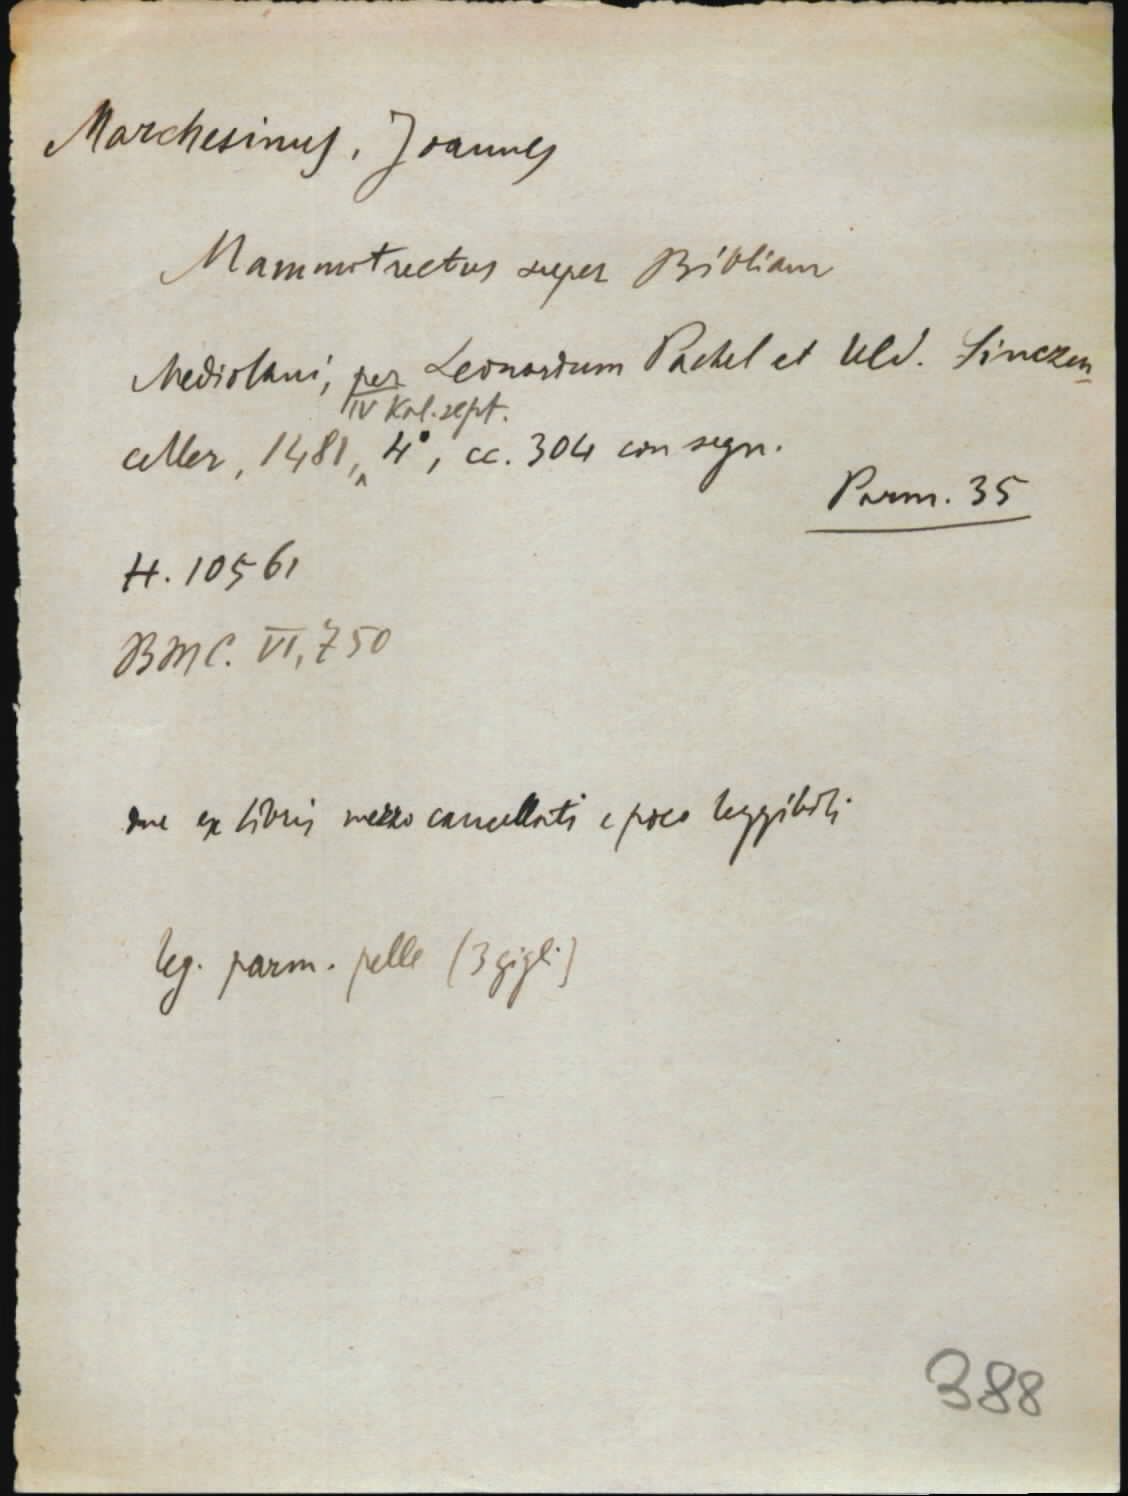 Marchesinus, Joannes
Mammotrectus super Bibliam
Mediolani, per Leonardum Pachel et Uld. Sinczen
IV Kal. sept.
celler, 1481, 4°, cc. 304 con segn.
Parm. 35
H. 10561
BMC. VI, 750
due ex libris mezzo cancellati e poco leggibili
leg. parm. pelle (3 gigli)
388